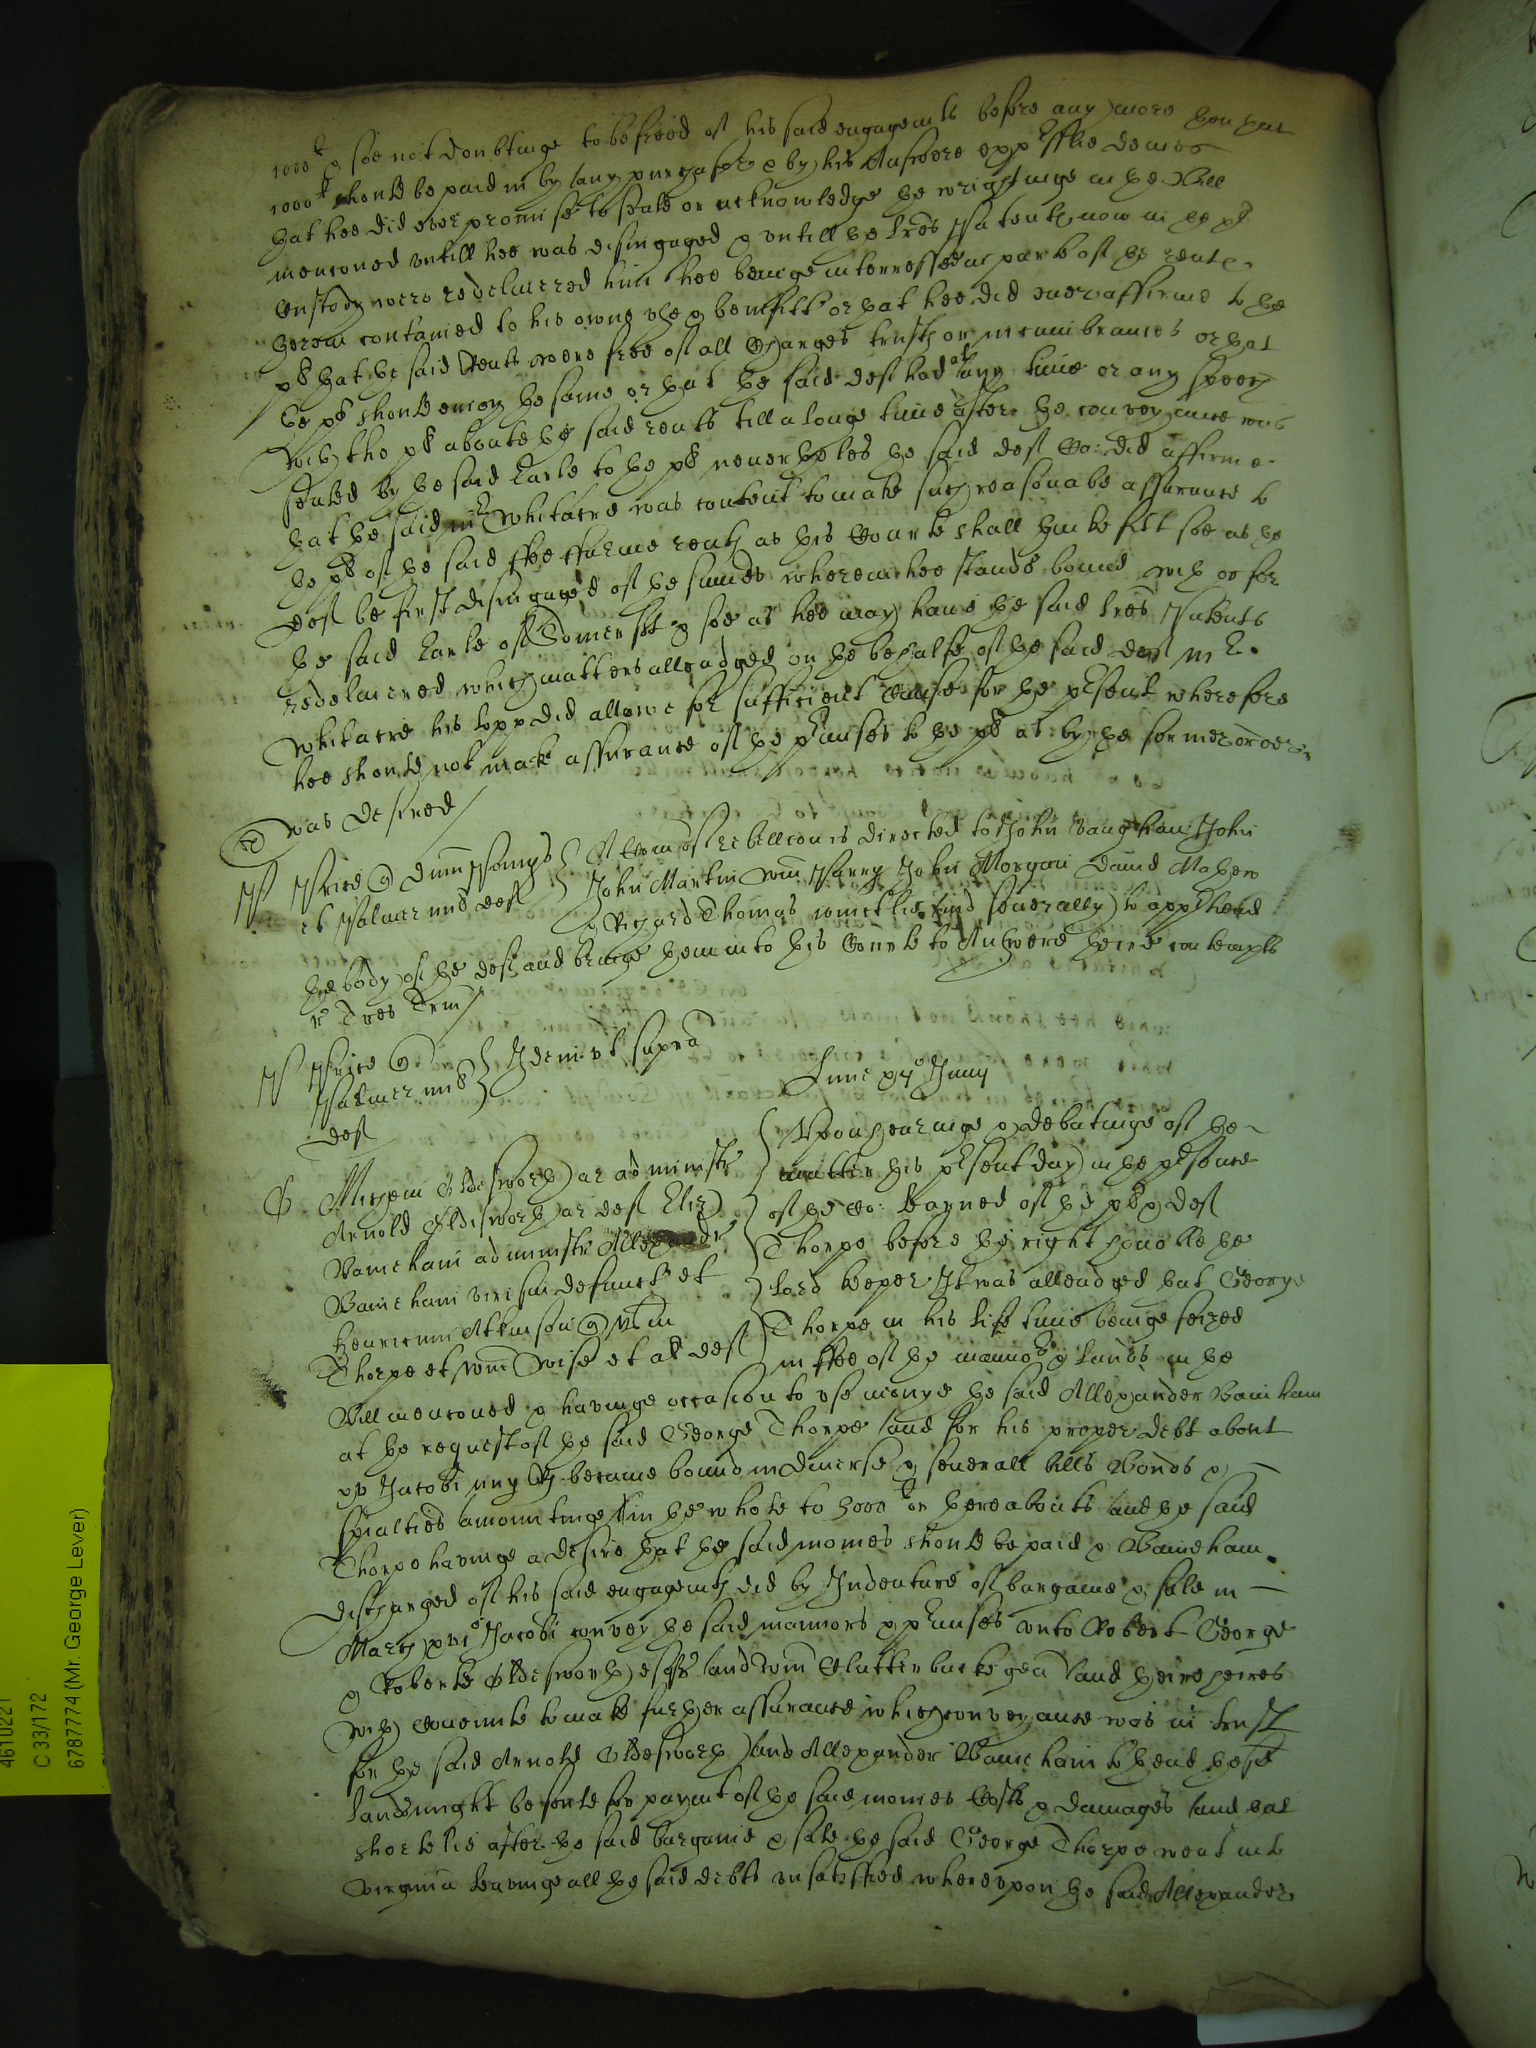 1000li & soe not doubtinge to be freed of his said engagemts before any more then that
1000li should be paid in by any purchasor & by his Answere expreslie denies
that hee did ever promise to seale or acknowledge the wrightinge in the Bill
menconed untill hee was disingaged & untill the lres Patents now in the pl
custody were redelivered him hee beinge interressed in parte of the rents
therein contained to his owne use & benefitt or that hee did ever affirme to the
pl that the said Rents were free of all Charges trusts or incumbrances or that
the pl should enioy the same or that the said deft had at any time or any speech
with the pl aboute the said rents till a longe time after the conveyance was
sealed by the said Earle to the pl neverthelesse the said deft Co: did affirme
that the said mr Whitacre was content to make such reasonable assurance to
the pl of the said ffee ffarme rents as this Courte shall thinke fitt soe as the
deft be first disingaged of the summes wherein hee stands bound with or for
the said Earle of Somersett & soe as hee may have the said lres Patents
redelivered which matters alleadged on the behalfe of the said deft mr
Whitacre his lopp did allowe for sufficient cause for the present wherefore
hee should not make assurance of the premises to the pl as by the former order
was desired
R
P
Price
et Palmer und deft
A Com of rebellcon is directed to John Vaughan John
John Martin Wm Parry John Morgan David Mathew
& Richard Thomas iointlie and severally to apprehend
the body of the deft and bringe them into this Courte to Answere theire contempts
r Tres Trin
P
Price
Palmer und
deft
Idem ut supra
Lune Junij
O
Michem Oldisworth ar administr
Arnold Oldisworth ar deft Eliz
Bainham administr Allexandr
Bainham viri sui defunct et
Henricum Atkinson
Thorpe et Wm Wise et al deft
Upon hearinge & debatinge of the
matter this present day in the presence
of the Co: learned of the pl & deft
Thorpe before the right honoble the
Lord Keeper It was alleadged that George
Thorpe in his life time beinge seized
in ffee of the mannors & lands in the
Bill menconed & havinge occasion to use monye the said Allexander Bainham
at the request of the said George Thorpe and for his proper debt about
Jacobi became bound in diverse & severall bills Bonds &
spialties amountinge in the whole to 3000li or thereabouts and the said
Thorpe havinge a desire that the said monies should be paid & Bainham
discharged of his said engagemts did by Indenture of bargaine & sale in
March Jacobi convey the said mannors & premises unto Robert George
& Roberte Oldisworth esqrs and Wm Clutterbucke gen and theire heires
with Covennte to make further assurance which conveyance was in trust
for the said Arnold Oldisworth and Allexander Bainham to thend these
lands might be sould for paymt of the said monies Costs & damages and that
shortelie after the said bargaine & sale the said George Thorpe went into
Virginia leavinge all the said debts unsatisfied whereupon the said Allexander
4610221
C 33/172
6787774 (Mr. George Lever)